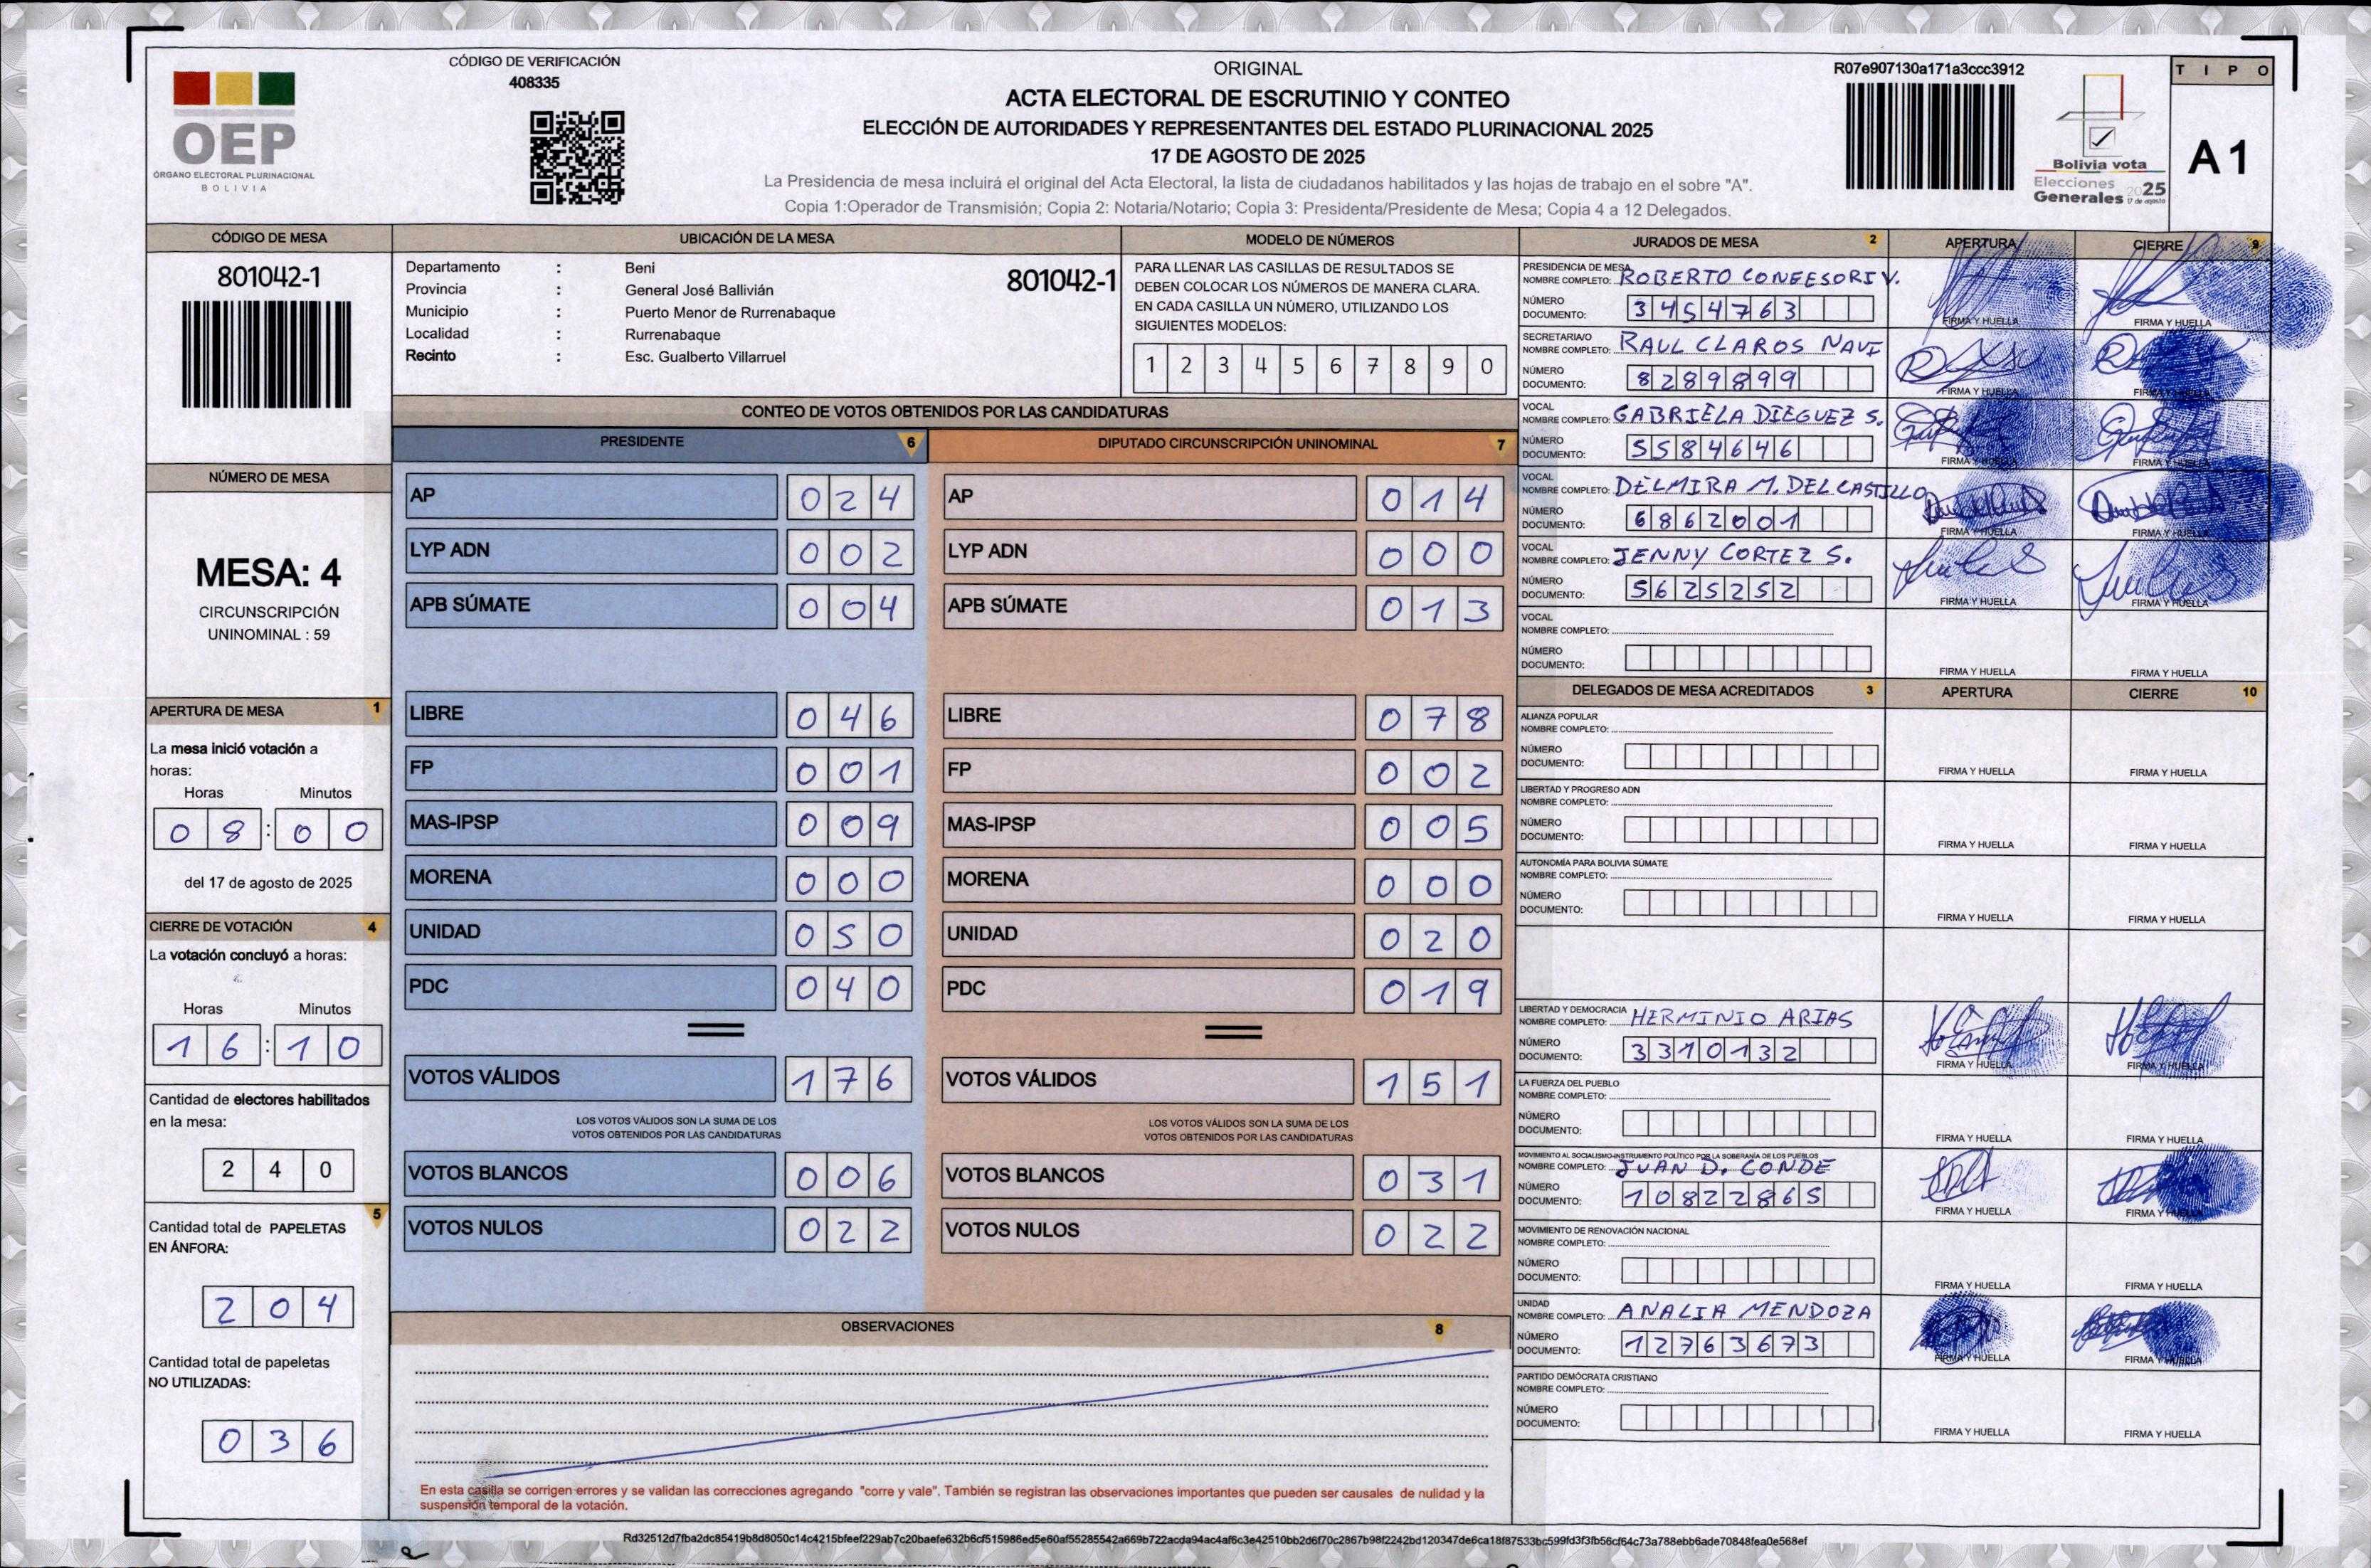 OEP
ÓRGANO ELECTORAL PLURINACIONAL
BOLIVIA
CÓDIGO DE VERIFICACIÓN
408335
ORIGINAL
ACTA ELECTORAL DE ESCRUTINIO Y CONTEO
ELECCIÓN DE AUTORIDADES Y REPRESENTANTES DEL ESTADO PLURINACIONAL 2025
17 DE AGOSTO DE 2025
La Presidencia de mesa incluirá el original del Acta Electoral, la lista de ciudadanos habilitados y las hojas de trabajo en el sobre "A".
Copia 1:Operador de Transmisión; Copia 2: Notaria/Notario; Copia 3: Presidenta/Presidente de Mesa; Copia 4 a 12 Delegados.
R07e907130a171a3ccc3912
Bolivia vota
Elecciones
Generales 2025
17 de agosto
TIPO
A1
CÓDIGO DE MESA
801042-1
UBICACIÓN DE LA MESA
Departamento : Beni
Provincia : General José Ballivián
Municipio : Puerto Menor de Rurrenabaque
Localidad : Rurrenabaque
Recinto : Esc. Gualberto Villarruel
801042-1
MODELO DE NÚMEROS
PARA LLENAR LAS CASILLAS DE RESULTADOS SE
DEBEN COLOCAR LOS NÚMEROS DE MANERA CLARA.
EN CADA CASILLA UN NÚMERO, UTILIZANDO LOS
SIGUIENTES MODELOS:
1 2 3 4 5 6 7 8 9 0
NÚMERO DE MESA
MESA: 4
CIRCUNSCRIPCIÓN
UNINOMINAL : 59
APERTURA DE MESA 1
La mesa inició votación a
horas:
Horas Minutos
08:00
del 17 de agosto de 2025
CIERRE DE VOTACIÓN 4
La votación concluyó a horas:
Horas Minutos
16:10
Cantidad de electores habilitados
en la mesa:
240
5
Cantidad total de PAPELETAS
EN ÁNFORA:
204
Cantidad total de papeletas
NO UTILIZADAS:
036
CONTEO DE VOTOS OBTENIDOS POR LAS CANDIDATURAS
PRESIDENTE 6
AP 024
LYP ADN 002
APB SÚMATE 004
LIBRE 046
FP 001
MAS-IPSP 009
MORENA 000
UNIDAD 050
PDC 040
VOTOS VÁLIDOS 176
LOS VOTOS VÁLIDOS SON LA SUMA DE LOS
VOTOS OBTENIDOS POR LAS CANDIDATURAS
VOTOS BLANCOS 006
VOTOS NULOS 022
DIPUTADO CIRCUNSCRIPCIÓN UNINOMINAL 7
AP 014
LYP ADN 000
APB SÚMATE 013
LIBRE 078
FP 002
MAS-IPSP 005
MORENA 000
UNIDAD 020
PDC 019
VOTOS VÁLIDOS 151
LOS VOTOS VÁLIDOS SON LA SUMA DE LOS
VOTOS OBTENIDOS POR LAS CANDIDATURAS
VOTOS BLANCOS 031
VOTOS NULOS 022
OBSERVACIONES 8
En esta casilla se corrigen errores y se validan las correcciones agregando "corre y vale". También se registran las observaciones importantes que pueden ser causales de nulidad y la
suspensión temporal de la votación.
JURADOS DE MESA 2 APERTURA CIERRE 9
PRESIDENCIA DE MESA
NOMBRE COMPLETO: ROBERTO CONFESORI V.
NÚMERO
DOCUMENTO: 3454763
FIRMA Y HUELLA FIRMA Y HUELLA
SECRETARIA/O
NOMBRE COMPLETO: RAUL CLAROS NAVI
NÚMERO
DOCUMENTO: 8289899
FIRMA Y HUELLA FIRMA Y HUELLA
VOCAL
NOMBRE COMPLETO: GABRIELA DIEGUEZ S.
NÚMERO
DOCUMENTO: 5584646
FIRMA Y HUELLA FIRMA Y HUELLA
VOCAL
NOMBRE COMPLETO: DELMIRA M. DEL CASTILLO
NÚMERO
DOCUMENTO: 6862001
FIRMA Y HUELLA FIRMA Y HUELLA
VOCAL
NOMBRE COMPLETO: JENNY CORTEZ S.
NÚMERO
DOCUMENTO: 5625252
FIRMA Y HUELLA FIRMA Y HUELLA
VOCAL
NOMBRE COMPLETO:
NÚMERO
DOCUMENTO:
FIRMA Y HUELLA FIRMA Y HUELLA
DELEGADOS DE MESA ACREDITADOS 3 APERTURA CIERRE 10
ALIANZA POPULAR
NOMBRE COMPLETO:
NÚMERO
DOCUMENTO:
FIRMA Y HUELLA FIRMA Y HUELLA
LIBERTAD Y PROGRESO ADN
NOMBRE COMPLETO:
NÚMERO
DOCUMENTO:
FIRMA Y HUELLA FIRMA Y HUELLA
AUTONOMÍA PARA BOLIVIA SÚMATE
NOMBRE COMPLETO:
NÚMERO
DOCUMENTO:
FIRMA Y HUELLA FIRMA Y HUELLA
LIBERTAD Y DEMOCRACIA
NOMBRE COMPLETO: HERMINIO ARIAS
NÚMERO
DOCUMENTO: 3310132
FIRMA Y HUELLA FIRMA Y HUELLA
LA FUERZA DEL PUEBLO
NOMBRE COMPLETO:
NÚMERO
DOCUMENTO:
FIRMA Y HUELLA FIRMA Y HUELLA
MOVIMIENTO AL SOCIALISMO-INSTRUMENTO POLÍTICO POR LA SOBERANÍA DE LOS PUEBLOS
NOMBRE COMPLETO: JUAN D. CONDE
NÚMERO
DOCUMENTO: 10822865
FIRMA Y HUELLA FIRMA Y HUELLA
MOVIMIENTO DE RENOVACIÓN NACIONAL
NOMBRE COMPLETO:
NÚMERO
DOCUMENTO:
FIRMA Y HUELLA FIRMA Y HUELLA
UNIDAD
NOMBRE COMPLETO: ANALIA MENDOZA
NÚMERO
DOCUMENTO: 12763673
FIRMA Y HUELLA FIRMA Y HUELLA
PARTIDO DEMÓCRATA CRISTIANO
NOMBRE COMPLETO:
NÚMERO
DOCUMENTO:
FIRMA Y HUELLA FIRMA Y HUELLA